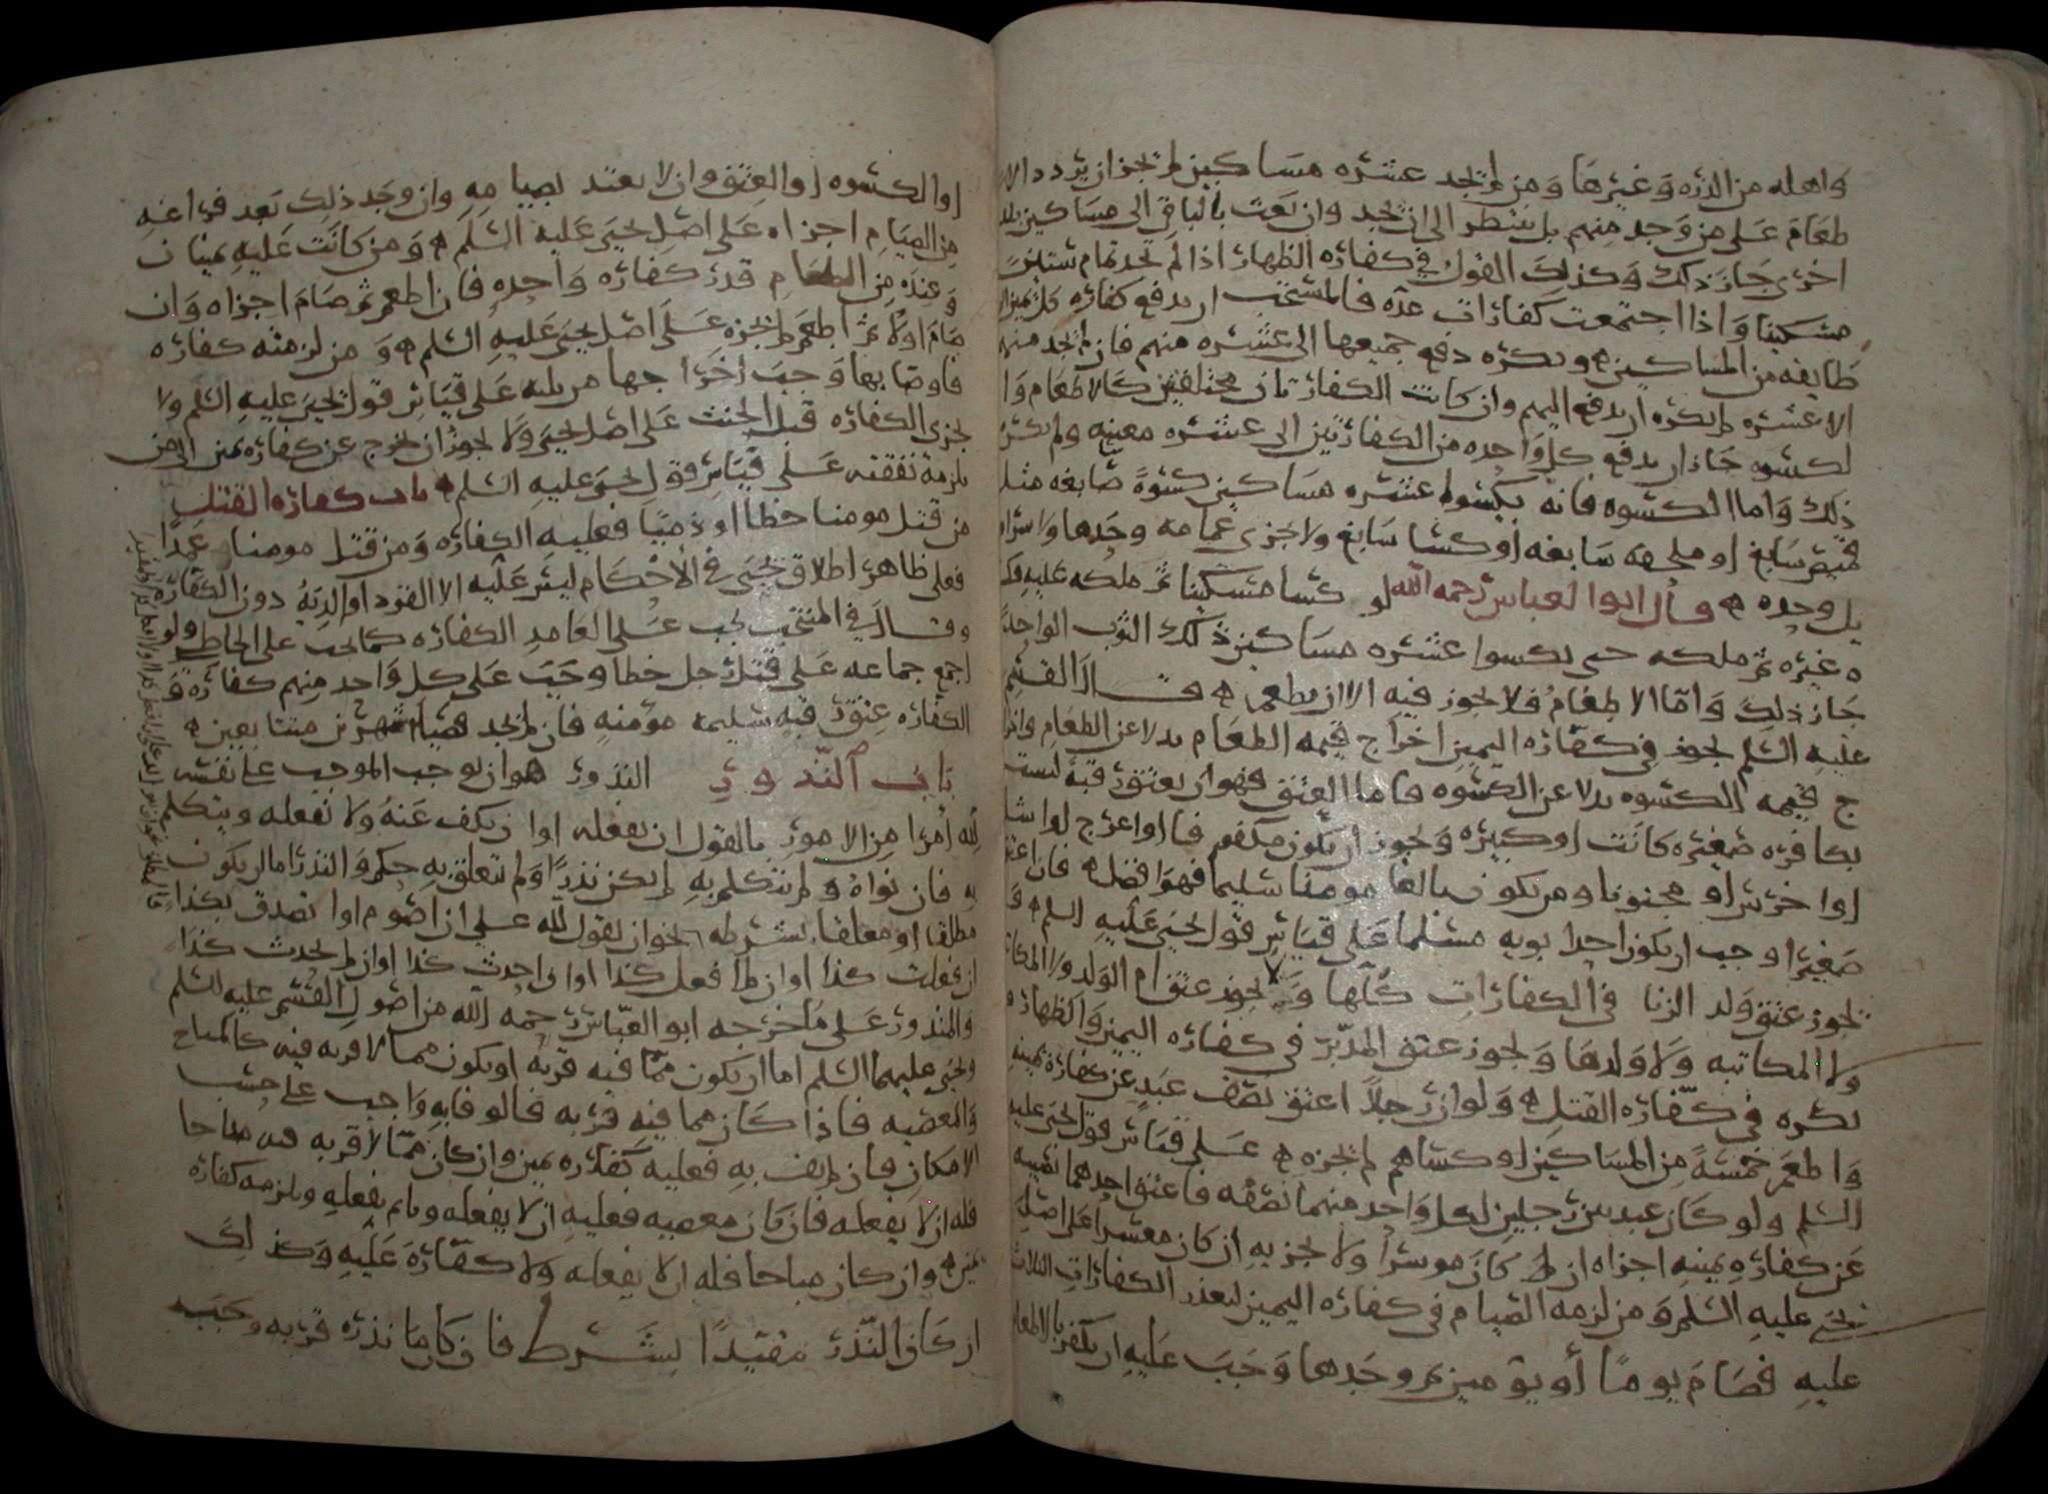 واهله من الذره وغيرها ومن لم يجد عشره مساكين لم يجز ان يردد الا
طعام على من وجد منهم بل ينتظر الى ان يجد وان بعث بالباقي الى مساكين بلد
اخرى جاز ذلك وكذلك القول في كفاره الظهار اذا لم يجد تمام ستين
مسكينا واذا اجتمعت كفارات عده فالمستحب ان يدفع كفاره كل يمين الى
طايفه من المساكين ويكره دفع جميعها الى عشره منهم فان لم يجد منهم
الا عشره لم يكره ان يدفع اليهم وان كانت الكفارتان مختلفتين كالاطعام وا
لكسوه جاز ان يدفع كل واحده من الكفارتين الى عشره معينه ولم يكره
ذلك واما الكسوه فانه يكسوا عشره مساكين كسوة سابغه مثل
قميص سابغ او ملحفه سابغه او كسا سابغ ولا يجزي عمامه وحدها ولا سرا
ويل وحده قال ابوا لعباس رحمه الله لو كسا مسكينا ثم ملكه عليه وكسا
ه غيره ثم ملكه حتى يكسوا عشره مساكين ذلك الثوب الواحد
جاز ذلك واما الاطعام فلا يجوز فيه الا ان يطعم قال القسم
عليه السلم يجوز في كفاره اليمين اخراج قيمه الطعام بدلا عن الطعام واخرا
ج قيمه الكسوه بدلا عن الكسوه فاما العتق فهو ان يعتق رقبة ليست
بكافره صغيره كانت او كبيره ويجوز ان يكون مكفوفا او اعرج او اشل
او اخرس او مجنونا ومن يكون بالغا مومنا سليما فهو افضل فان اعتق
صغيرا وجب ان يكون احد ابويه مسلما على قياس قول يحيى عليه السلم و
يجوز عتق ولد الزنا في الكفارات كلها ولا يجوز عتق ام الولد ولا المكاتب
ولا المكاتبه ولا ولدها ويجوز عتق المدبر في كفاره اليمين والظهار و
يكره في كفاره القتل ولو ان رجلا اعتق نصف عبد عن كفارة يمينه
واطعم خمسة من المساكين او كساهم لم يجزه على قياس قول يحيى عليه
السلم ولو كان عبد بين رجلين لكل واحد منهما نصفه فاعتق احدهما نصيبه
عن كفارة يمينه اجزاه ان كان موسرا ولا يجزيه ان كان معسرا على اصل
يحيى عليه السلم ومن لزمه الصيام في كفاره اليمين لتعذر الكفارات الثلاث
عليه فصام يوما أو يومين ثم وجدها وجب عليه ان يكفر بالاطعام
او الكسوه او العتق وان لا يعتد بصيامه وان وجد ذلك بعد فراغه
من الصيام اجزاه على اصل يحيى عليه السلم ومن كانت عليه يمينان
وعنده من الطعام قدر كفاره واحده فان اطعم ثم صام اجزاه وان
صام اولا ثم اطعم لم يجزه على اصل يحيى عليه السلم ومن لزمته كفاره
فاوصا بها وجب اخراجها من ثلثه على قياس قول يحيى عليه السلم ولا
يجزي الكفاره قبل الحنث على اصل يحيى ولا يجوز ان يخرج عن كفاره يمين الى من
يلزمه نفقته على قياس قول يحيى عليه السلم باب كفاره القتل
من قتل مومنا خطا او ذميا فعليه الكفاره ومن قتل مومنا عمدا
فعلى ظاهر اطلاق يحيى في الأحكام ليس عليه الا القود او الدية دون الكفاره
وقال في المنتخب يجب على العامد الكفاره كما يجب على الخاطي ولو
اجمع جماعه على قتل رجل خطا وجب على كل واحد منهم كفارة و
الكفاره عتق رقبه سليمه مؤمنه فان لم يجد فصيام شهرين متتابعين
باب النذور النذور هو ان يوجب الموجب على نفسه
لله أمرا من الامور بالقول ان يفعله او ان يكف عنه ولا يفعله ويتكلم
به فان نواه ولم يتكلم به لم يكن نذرا ولم تتعلق به حكم والنذر اما ان يكون
مطلقا او معلقا بشرطه نحو ان يقول لله علي ان اصوم او اتصدق بكذا
ان فعلت كذا او ان لم افعل كذا او ان احدث كذا او ان لم يحدث كذا
والمنذور على ما خرجه ابو العباس رحمه الله من اصول القسم عليه السلم
ويحيى عليهما السلم اما ان يكون مما فيه قربه او يكون مما لا قربه فيه كالمباح
والمعصيه فاذا كان مما فيه قربه فالوفا به واجب على حسب
الامكان فان لم يف به فعليه كفاره يمين وان كان مما لا قربه فيه مباحا
فله ان لا يفعله فان كان معصيه فعليه ان لا يفعله وان لم يفعله ويلزمه كفاره
يمين وان كان مباحا فله ان لا يفعله ولا كفارة عليه وكذلك
ان كان النذر مقيدا بشرط فان كان ما نذره قربه وجب